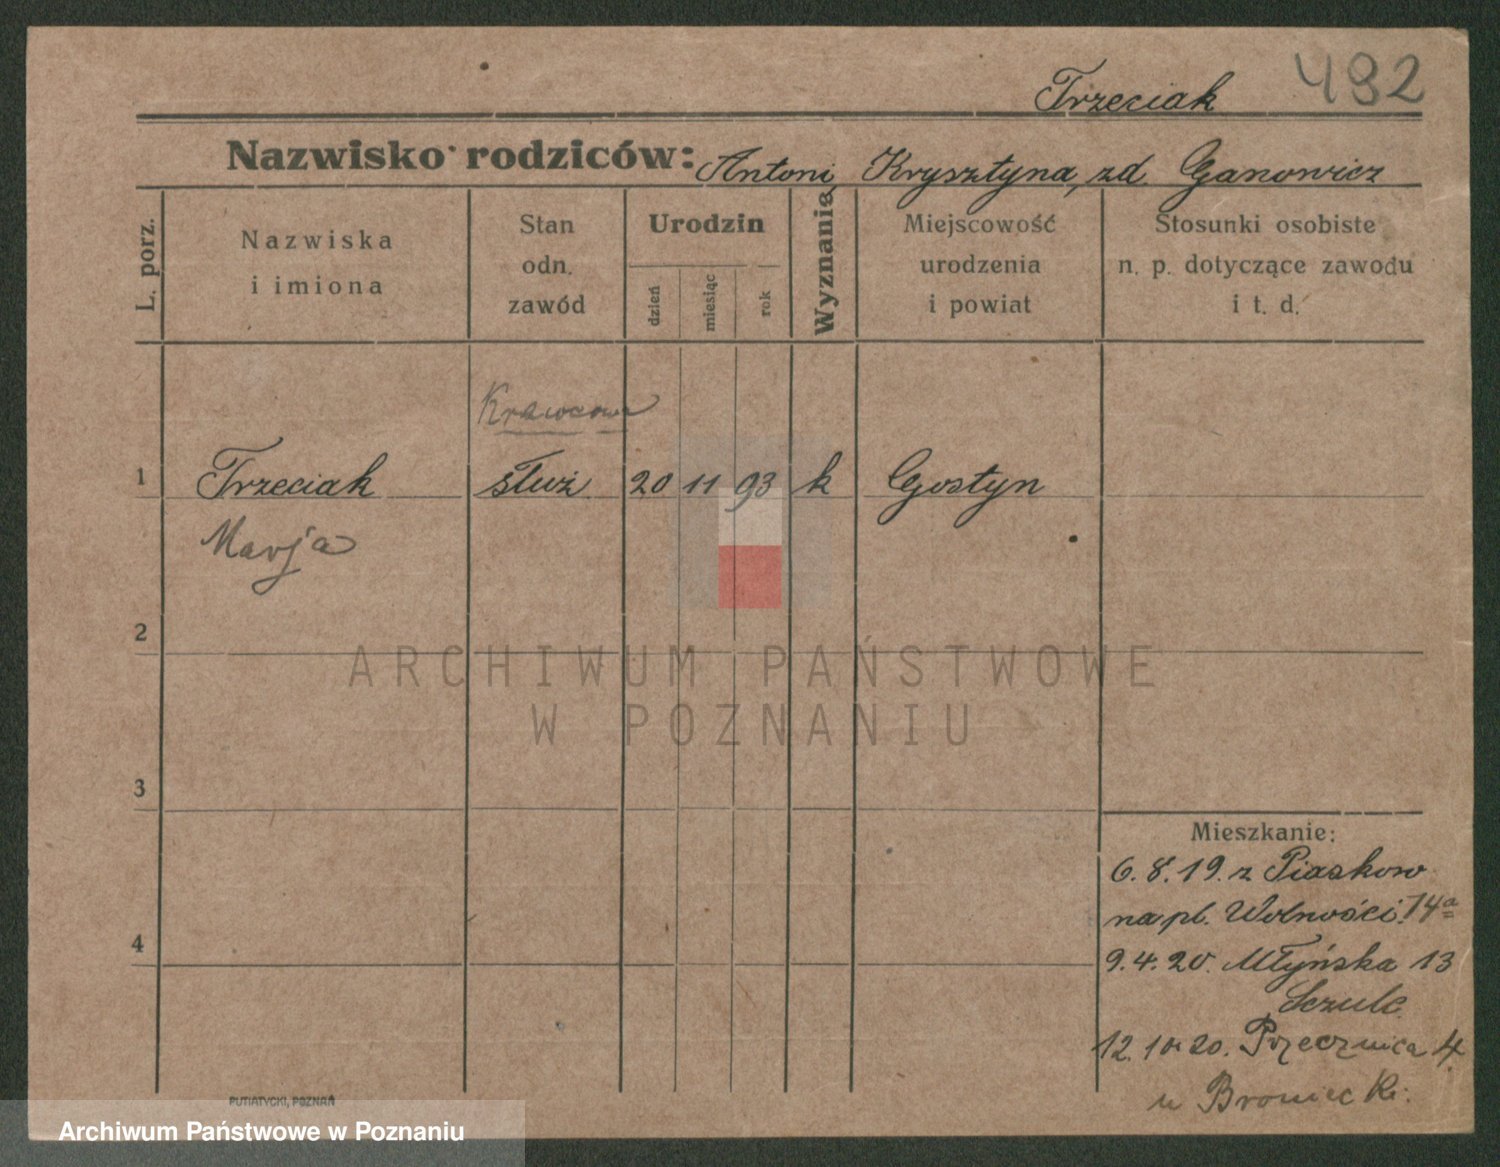 Trzeciak 492
Nazwisko rodziców: Antoni, Krysztyna, zd. Ganowicz
L. porz.
Nazwiska
i imiona
Stan
odn.
zawód
Urodzin
dzień
miesiąc
rok
Wyznanie
Miejscowość
urodzenia
i powiat
Stosunki osobiste
n. p. dotyczące zawodu
i t. d.
Krawcowa
1 Trzeciak służ 20 11 93 k Gostyn
Marja
2
ARCHIWUM PAŃSTWOWE
W POZNANIU
3
Mieszkanie:
6.8.19. z Piaskow
na pl. Wolności 14a
4
9.4.20. Młyńska 13
Szulc.
12.10.20. Przecznica 4.
u Broniecki.
PUTIATYCKI, POZNAŃ
Archiwum Państwowe w Poznaniu